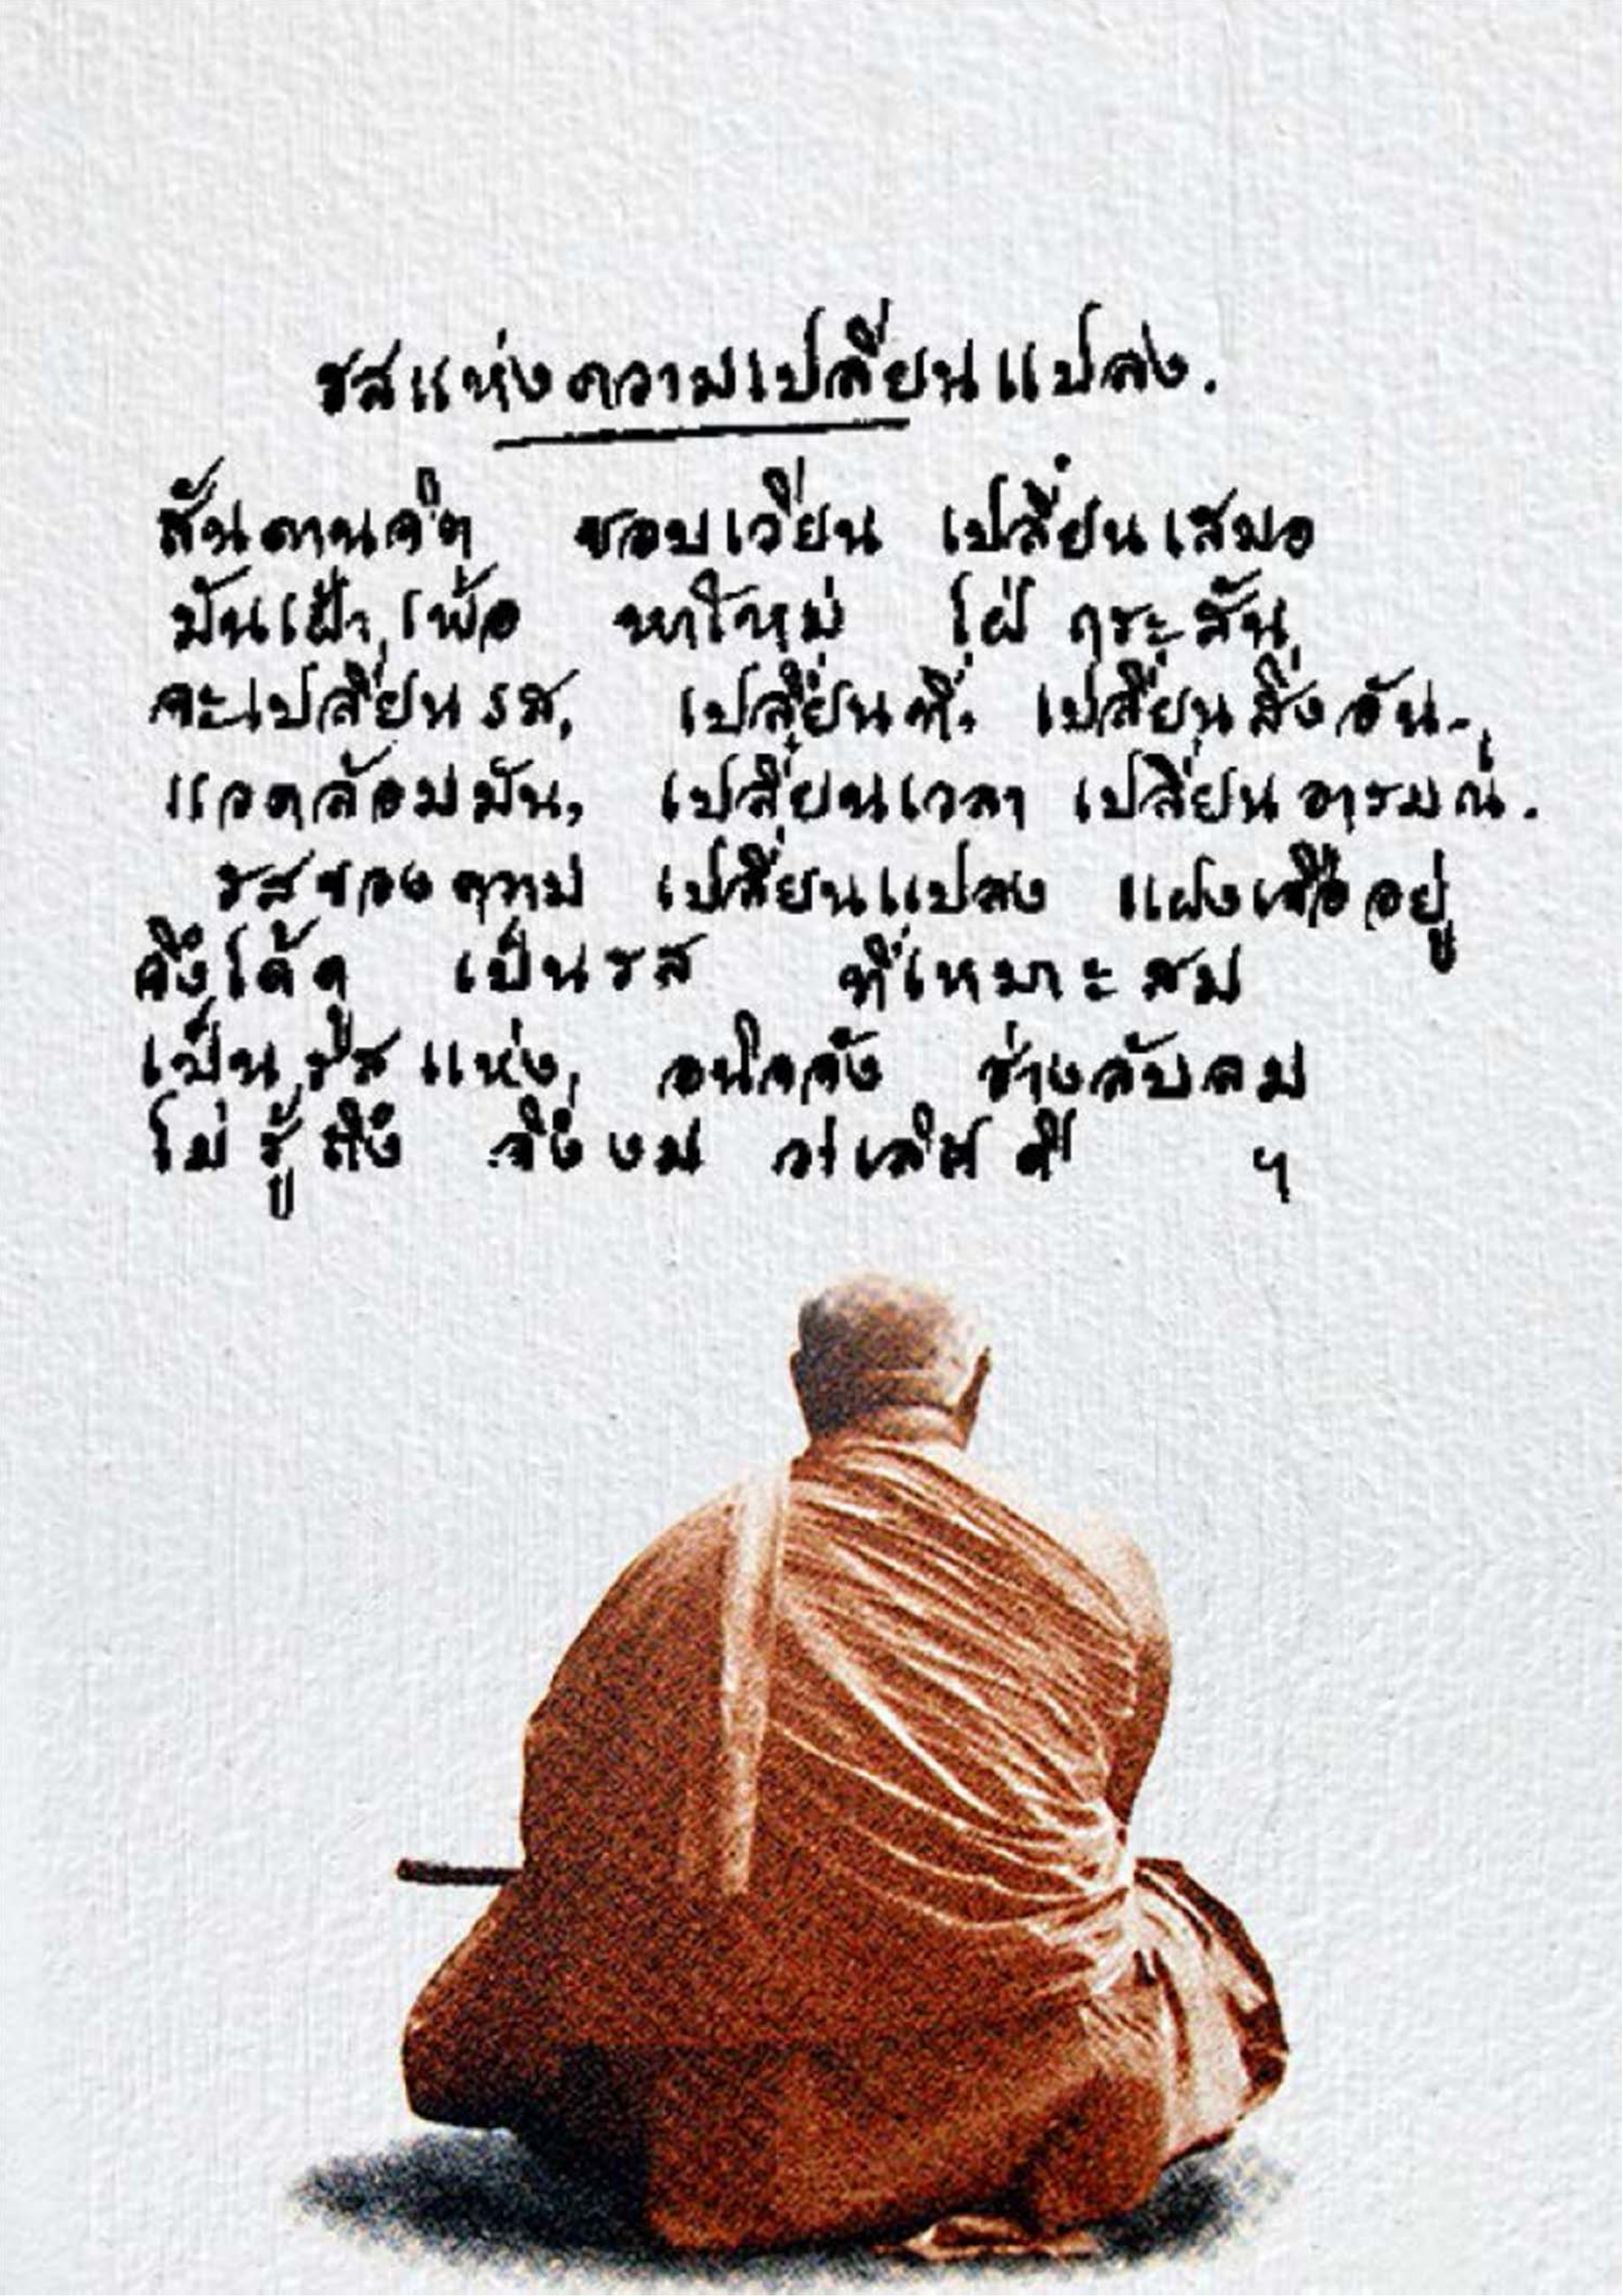 รสแห่งความเปลี่ยนแปลง.
สันดานจิต ชอบเวียน เปลี่ยนเสมอ
มันเฝ้าเพ้อ หาใหม่ ใฝ่ กระสัน
จะเปลี่ยนรส, เปลี่ยนที่, เปลี่ยนสิ่งอัน-,
แวดล้อมมัน, เปลี่ยนเวลา เปลี่ยนอารมณ์.
รสของความ เปลี่ยนแปลง แฝงเจืออยู่
จึงได้ดู เป็นรส ที่เหมาะสม
เป็นรสแห่ง, อนิจจัง ช่างลับลม
ไม่รู้ถึง จึงงม ว่าเลิศดี ฯ